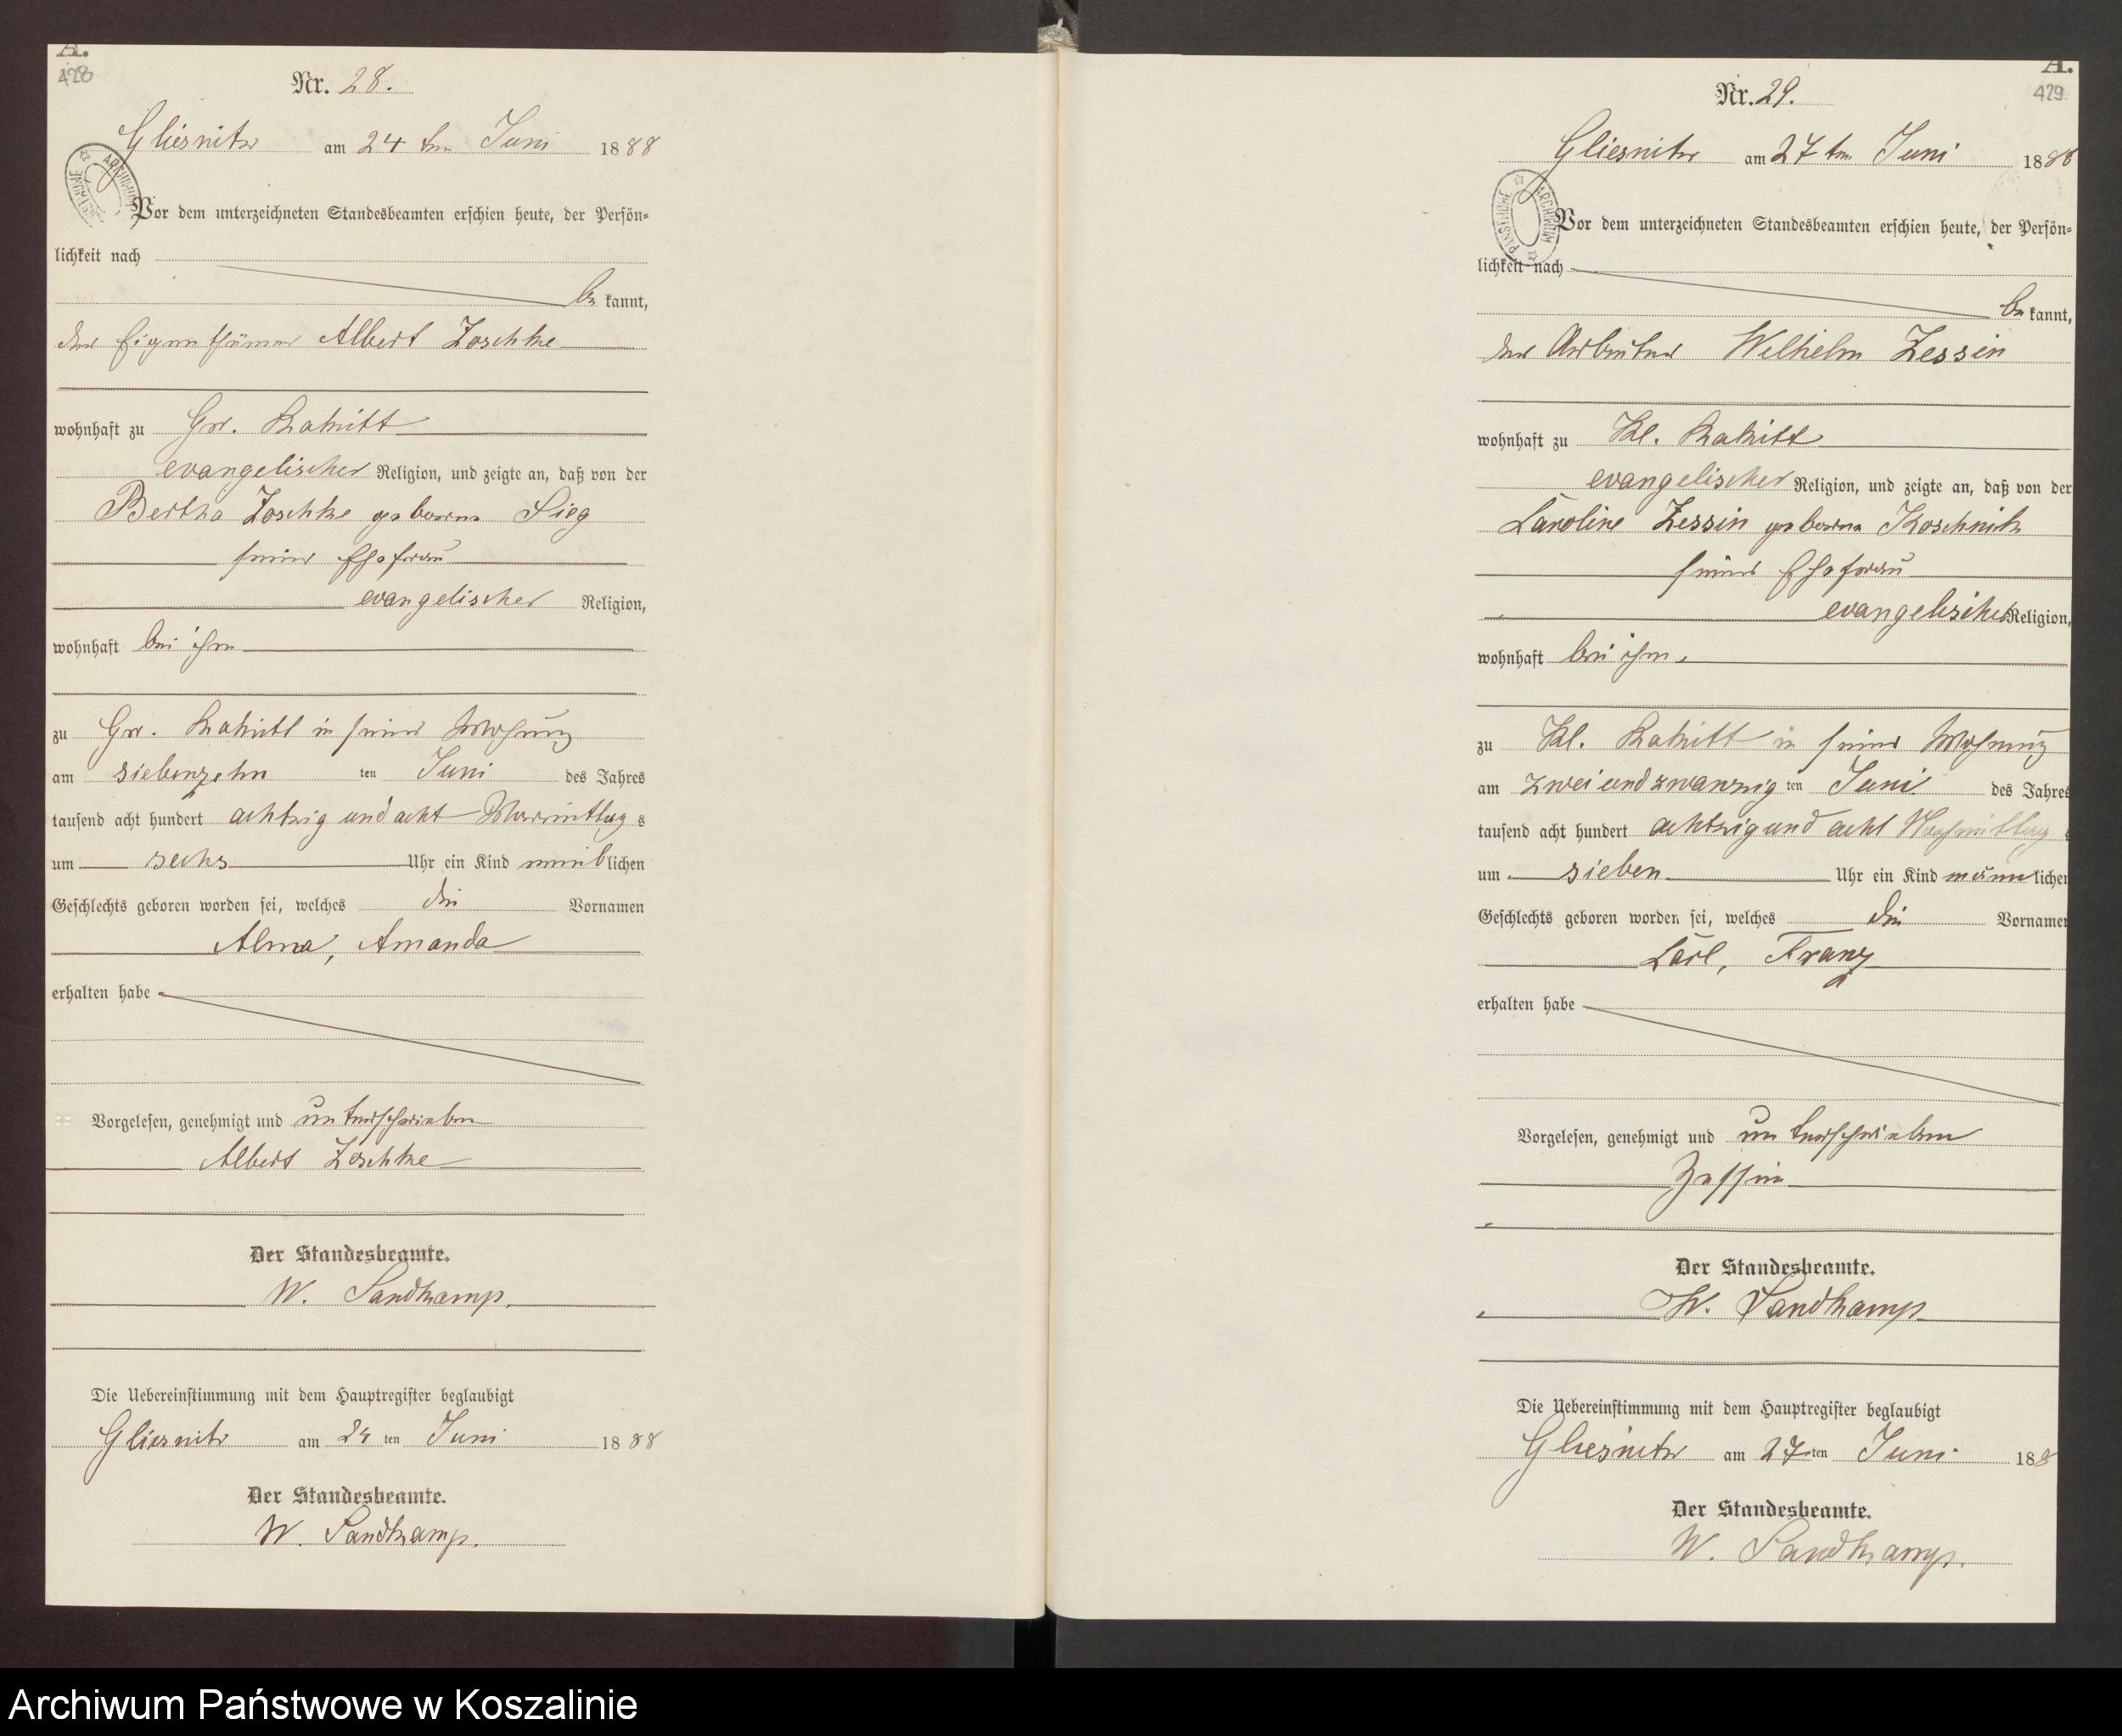 A.
428
Nr. 28.
Gliesnitz am 24 ten Juni 1888
ARCHIWUM PAŃSTWOWE
Vor dem unterzeichneten Standesbeamten erschien heute, der Persön-
lichkeit nach
be kannt,
der Eigenthümer Albert Zoschke
wohnhaft zu Gr. Rakitt
evangelischer Religion, und zeigte an, daß von der
Bertha Zoschke geborene Sieg
seiner Ehefrau
evangelischer Religion,
wohnhaft bei ihm
zu Gr. Rakitt in seiner Wohnung
am siebenzehn ten Juni des Jahres
tausend acht hundert achtzig und acht Vormittag s
um sechs Uhr ein Kind weiblichen
Geschlechts geboren worden sei, welches die Vornamen
Alma, Amanda
erhalten habe
Vorgelesen, genehmigt und unterschrieben
Albert Zoschke
Der Standesbeamte.
W. Sandkamp.
Die Uebereinstimmung mit dem Hauptregister beglaubigt
Gliesnitz am 24 ten Juni 1888
Der Standesbeamte.
W. Sandkamp.
A.
429
Nr. 29.
Gliesnitz am 27 ten Juni 1888
ARCHIWUM PAŃSTWOWE
Vor dem unterzeichneten Standesbeamten erschien heute, der Persön-
lichkeit nach
be kannt,
der Arbeiter Wilhelm Zessin
wohnhaft zu Kl. Rakitt
evangelischer Religion, und zeigte an, daß von der
Caroline Zessin geborne Koschnik
seiner Ehefrau
evangelischer Religion,
wohnhaft bei ihm,
zu Kl. Rakitt in seiner Wohnung
am zwei und zwanzig ten Juni des Jahres
tausend acht hundert achtzig und acht Nachmittag s
um sieben Uhr ein Kind männlichen
Geschlechts geboren worden sei, welches die Vornamen
Carl, Franz
erhalten habe
Vorgelesen, genehmigt und unterschrieben
Zessin
Der Standesbeamte.
W. Sandkamp
Die Uebereinstimmung mit dem Hauptregister beglaubigt
Gliesnitz am 27 ten Juni 188
Der Standesbeamte.
W. Sandkamp.
Archiwum Państwowe w Koszalinie